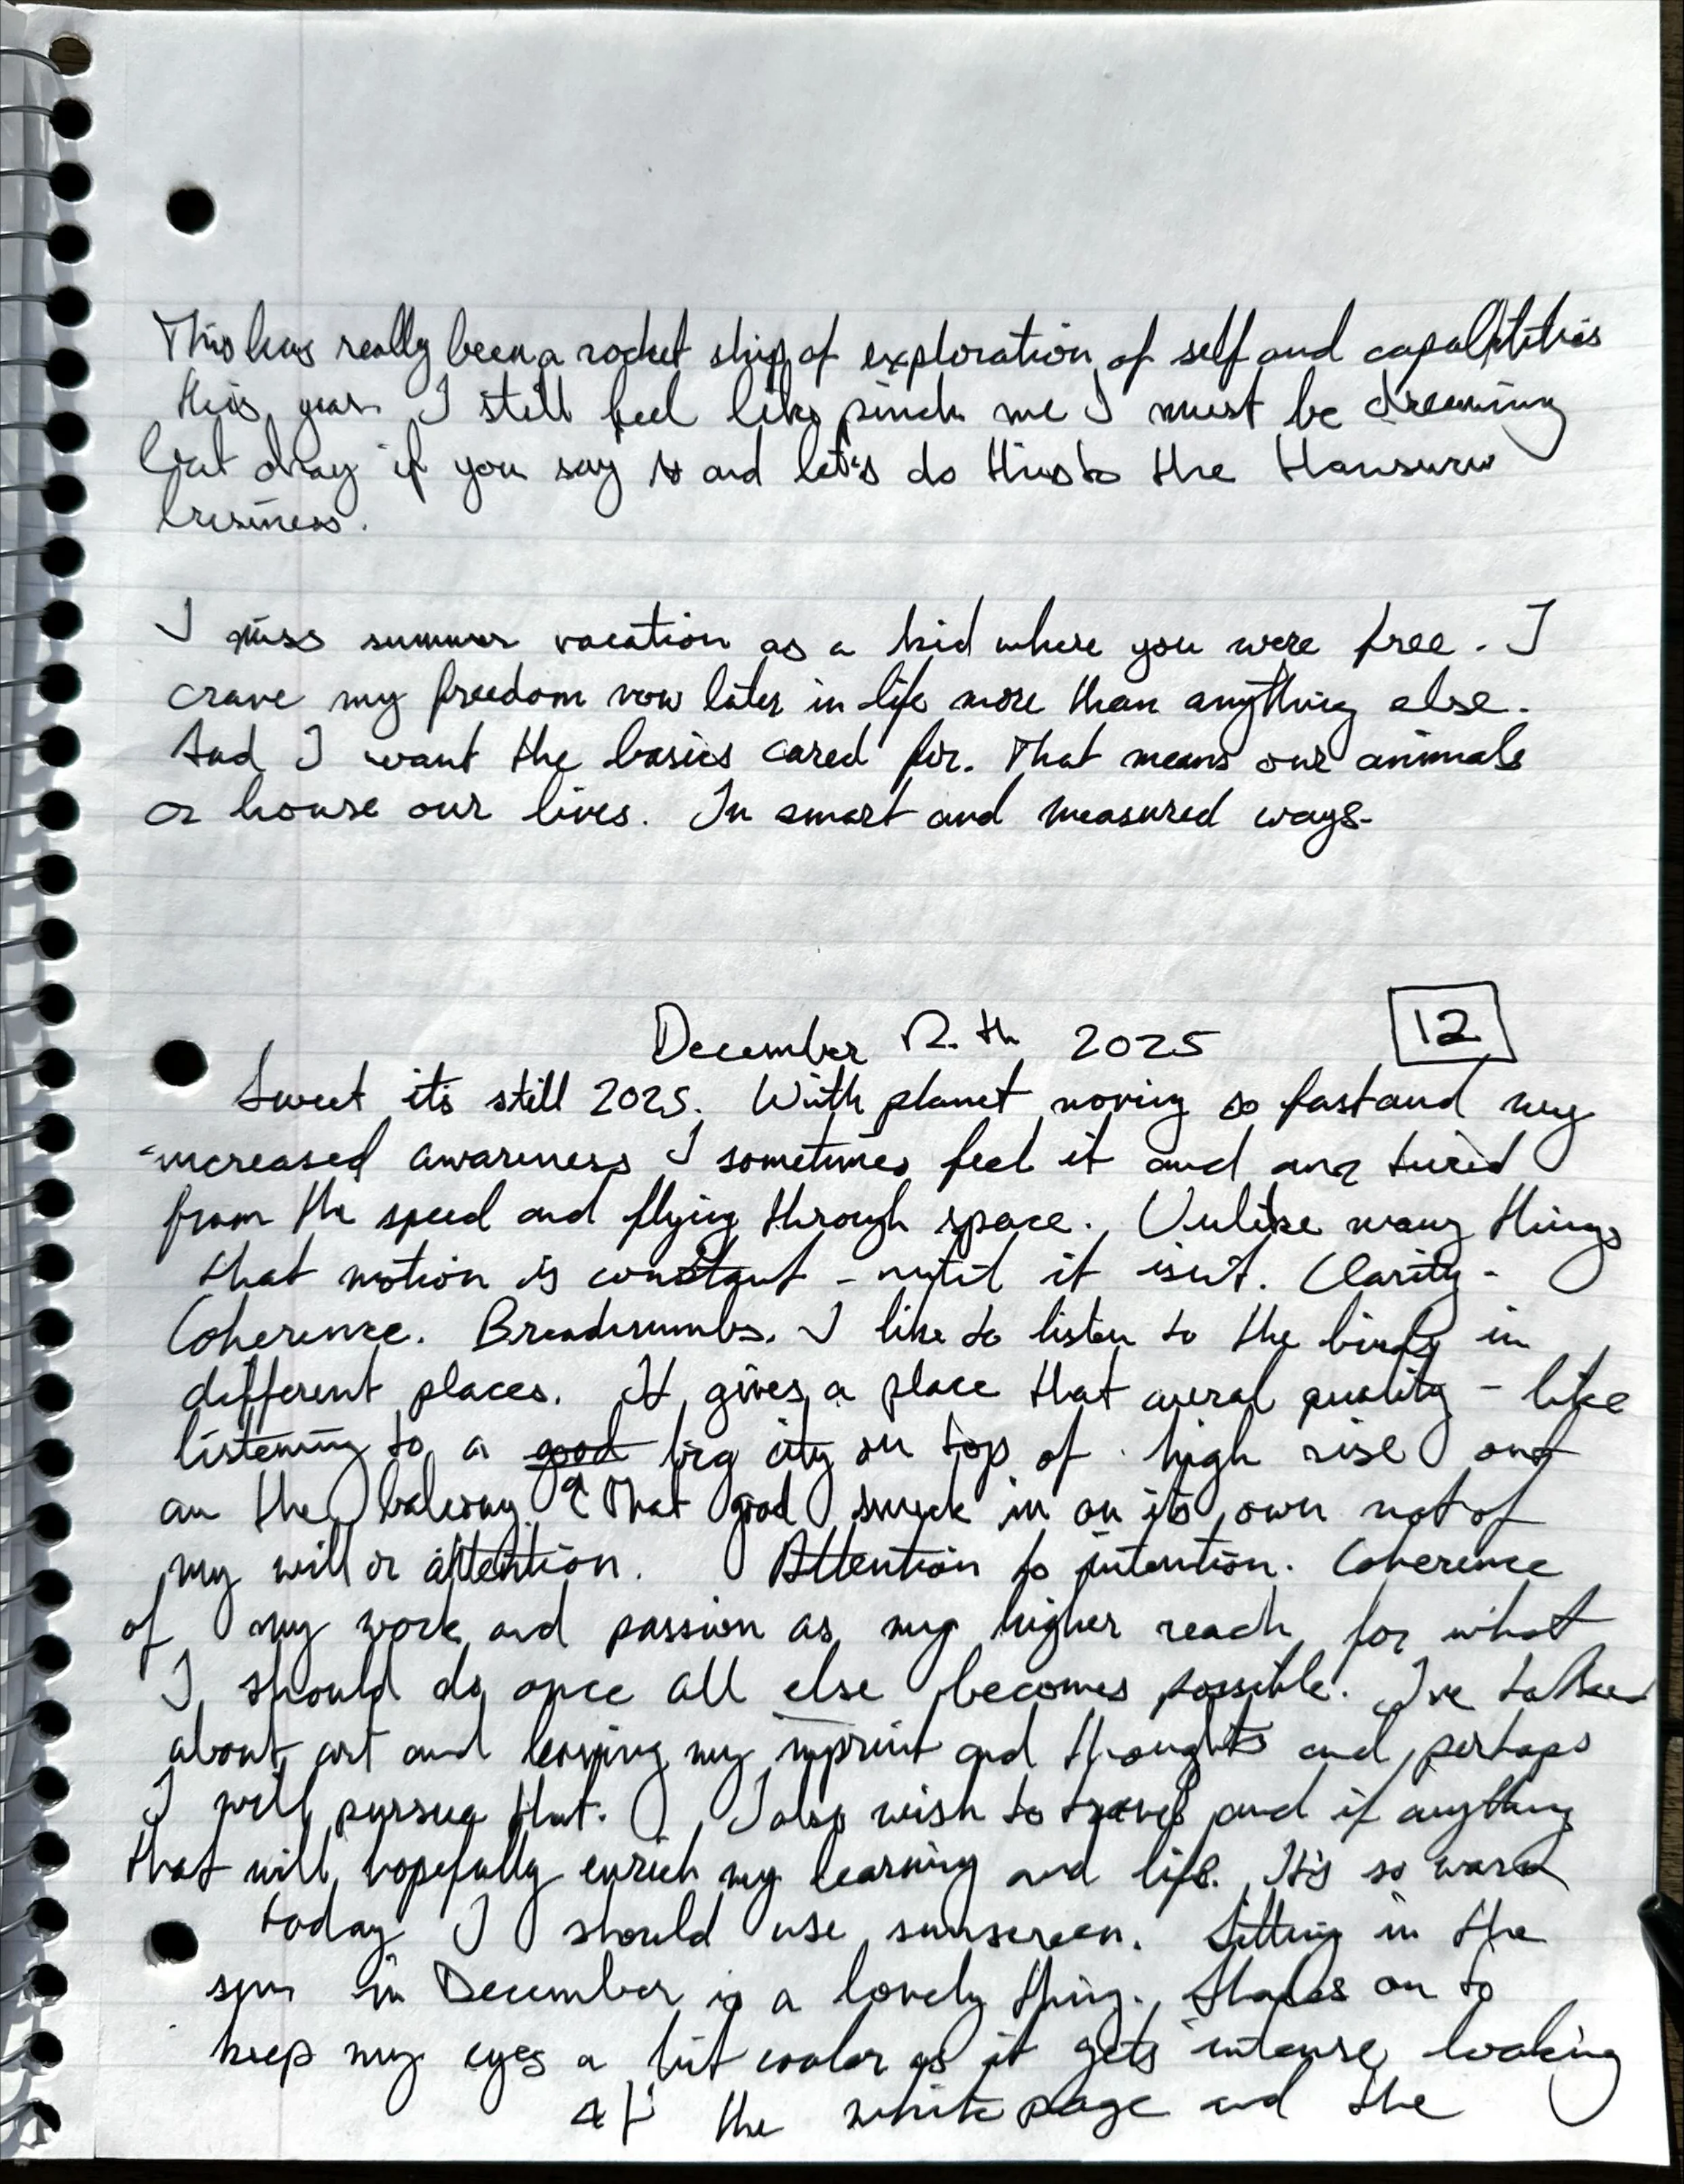 This has really been a rocket ship of exploration of self and capabilities
this year. I still feel like pinch me I must be dreaming
but okay if you say so and let's do this to the
business.
I miss summer vacation as a kid where you were free. I
crave my freedom now later in life more than anything else.
And I want the basics cared for. That means our animals
or house our lives. In smart and measured ways.
December 12th 2025
12
Sweet its still 2025. With planet moving so fast and my
increased awareness I sometimes feel it and am tired
from the speed and flying through space. Unlike many things
that motion is constant - until it isn't. Clarity -
Coherence. Breadcrumbs. I like to listen to the birds in
different places. It gives a place that aural quality - like
listening to a good big city on top of high rise out
on the balcony. That good snuck in on its own not of
my will or attention. Attention to intention. Coherence
of my work and passion as my higher reach for what
I should do once all else becomes possible. I've talked
about art and leaving my imprint and thoughts and perhaps
I will pursue that. I also wish to travel and if anything
that will hopefully enrich my learning and life. It's so warm
today I should use sunscreen. Sitting in the
sun in December is a lovely thing. Shades on to
keep my eyes a bit cooler as it gets intense looking
at the white page and the